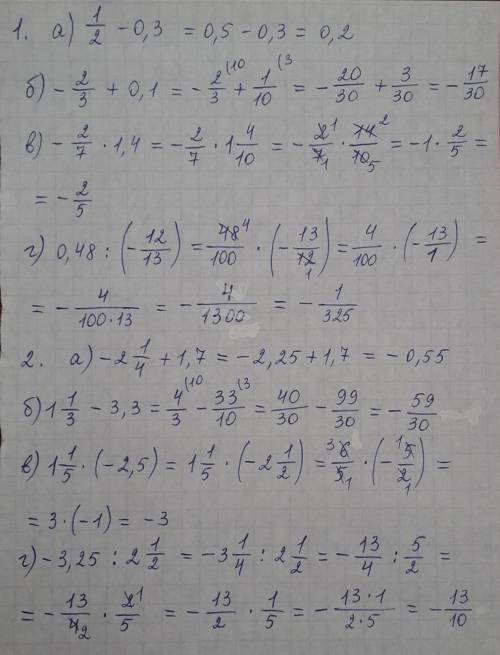 1. а) 1/2 - 0,3 = 0,5 - 0,3 = 0,2
б) - 2/3 + 0,1 = - 2/3 (10 + 1/10 (3 = - 20/30 + 3/30 = - 17/30
в) - 2/7 · 1,4 = - 2/7 · 1 4/10 = - 2̶ 1/7̶ 1 · 1̶4̶ 2/1̶0̶ 5 = -1 · 2/5 =
= - 2/5
г) 0,48 : (- 12/13) = 4̶8̶ 4/100 · (- 13/1̶2̶ 1) = 4/100 · (- 13/1) =
= - 4/100·13 = - 4/1300 = - 1/325
2. а) -2 1/4 + 1,7 = -2,25 + 1,7 = -0,55
б) 1 1/3 - 3,3 = 4/3 (10 - 33/10 (3 = 40/30 - 99/30 = - 59/30
в) 1 1/5 · (-2,5) = 1 1/5 · (-2 1/2) = 3 6̶/5̶ 1 · (- 1 5̶/2̶ 1) =
= 3 · (-1) = -3
г) -3,25 : 2 1/2 = -3 1/4 : 2 1/2 = - 13/4 : 5/2 =
= - 13/4̶ 2 · 2̶ 1/5 = - 13/2 · 1/5 = - 13·1/2·5 = - 13/10